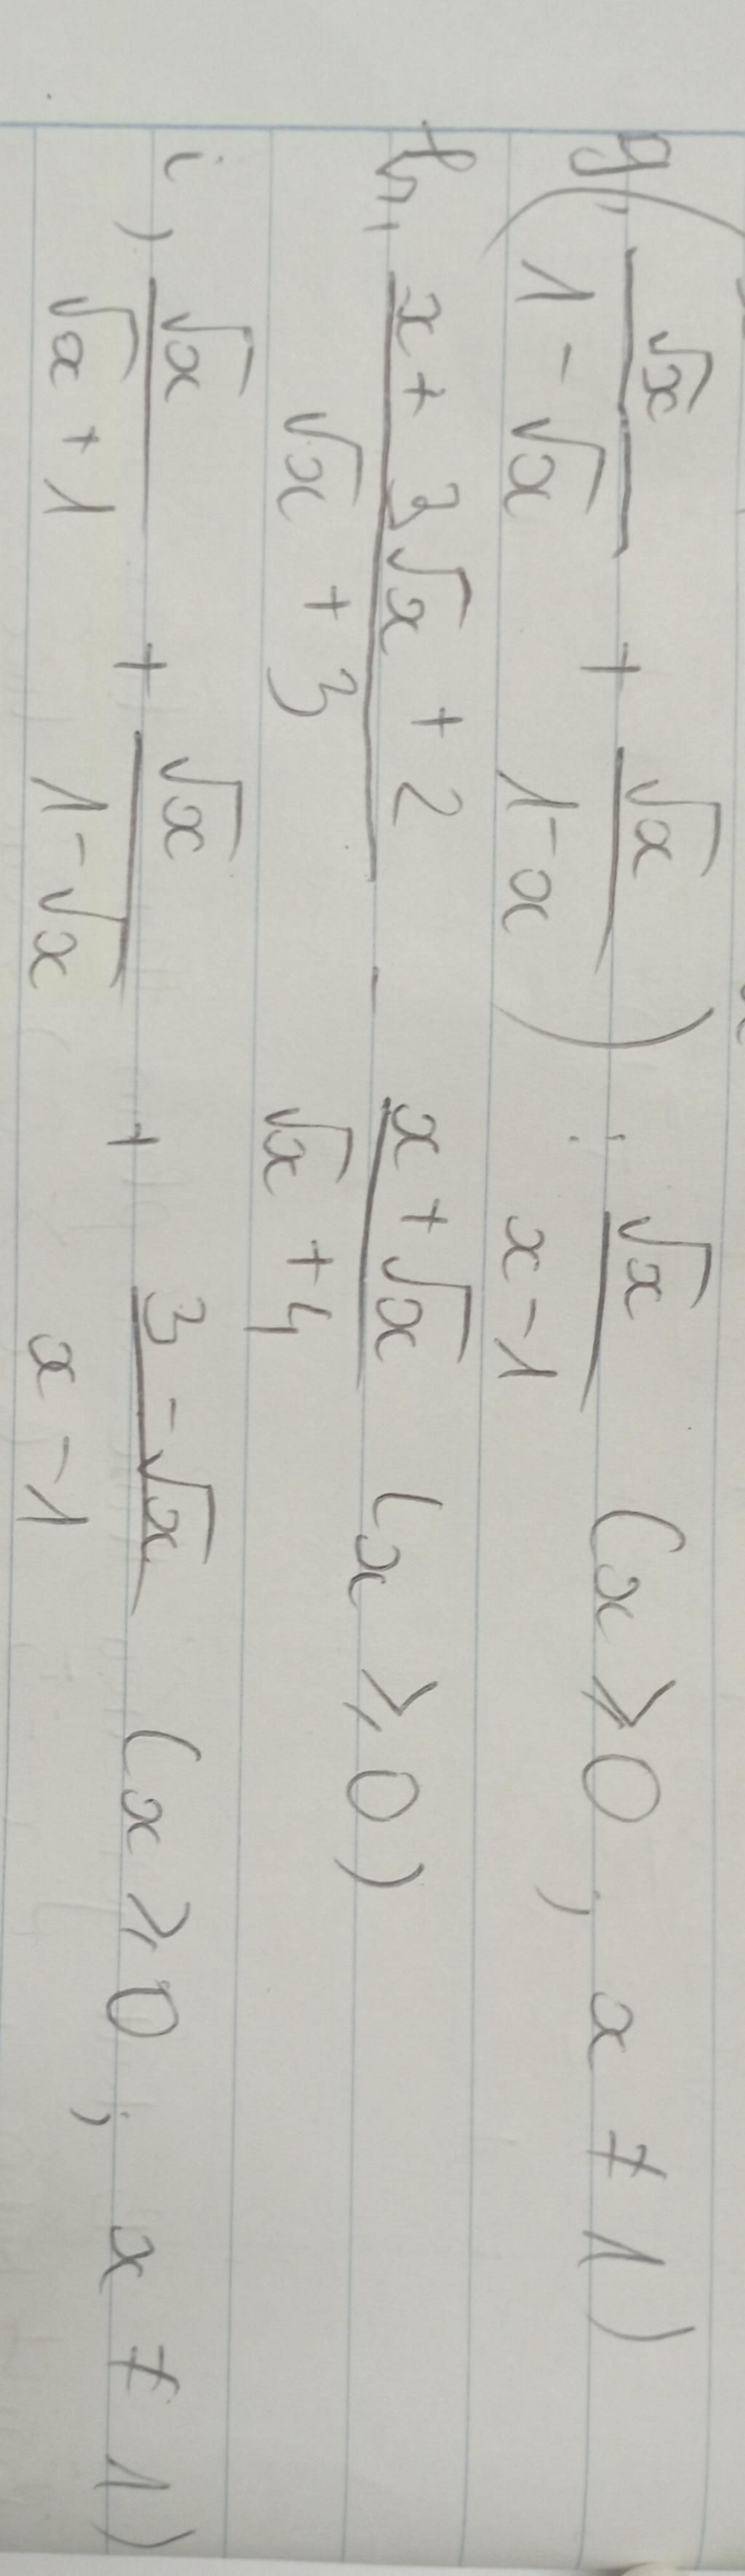 g, (√x / (1 - √x) + √x / (1 - x)) : √x / (x - 1) (x > 0, x ≠ 1)
h, (x + 3√x + 2) / (√x + 3) - (x + √x) / (√x + 4) (x ≥ 0)
i, √x / (√x + 1) + √x / (1 - √x) + (3 - √x) / (x - 1) (x ≥ 0, x ≠ 1)